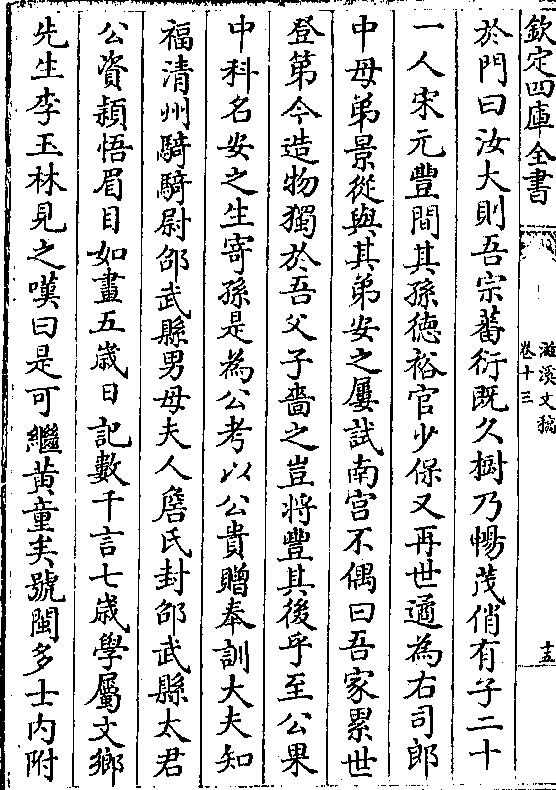 欽定四庫全書
滋溪文稿
卷十三
十五
於門曰汝大則吾宗蕃衍既久樹乃暢茂俏有子二十
一人宋元豐間其孫德裕官少保又再世遹為右司郎
中母弟景從與其弟安之屢試南宫不偶曰吾家累世
登第今造物獨於吾父子嗇之豈將豐其後乎至公果
中科名安之生寄孫是為公考以公貴贈奉訓大夫知
福清州騎騎尉邵武縣男母夫人詹氏封邵武縣太君
公資穎悟眉目如畫五歳日記數千言七歳學屬文鄉
先生李玉林見之嘆曰是可繼黄童矣號閩多士内附